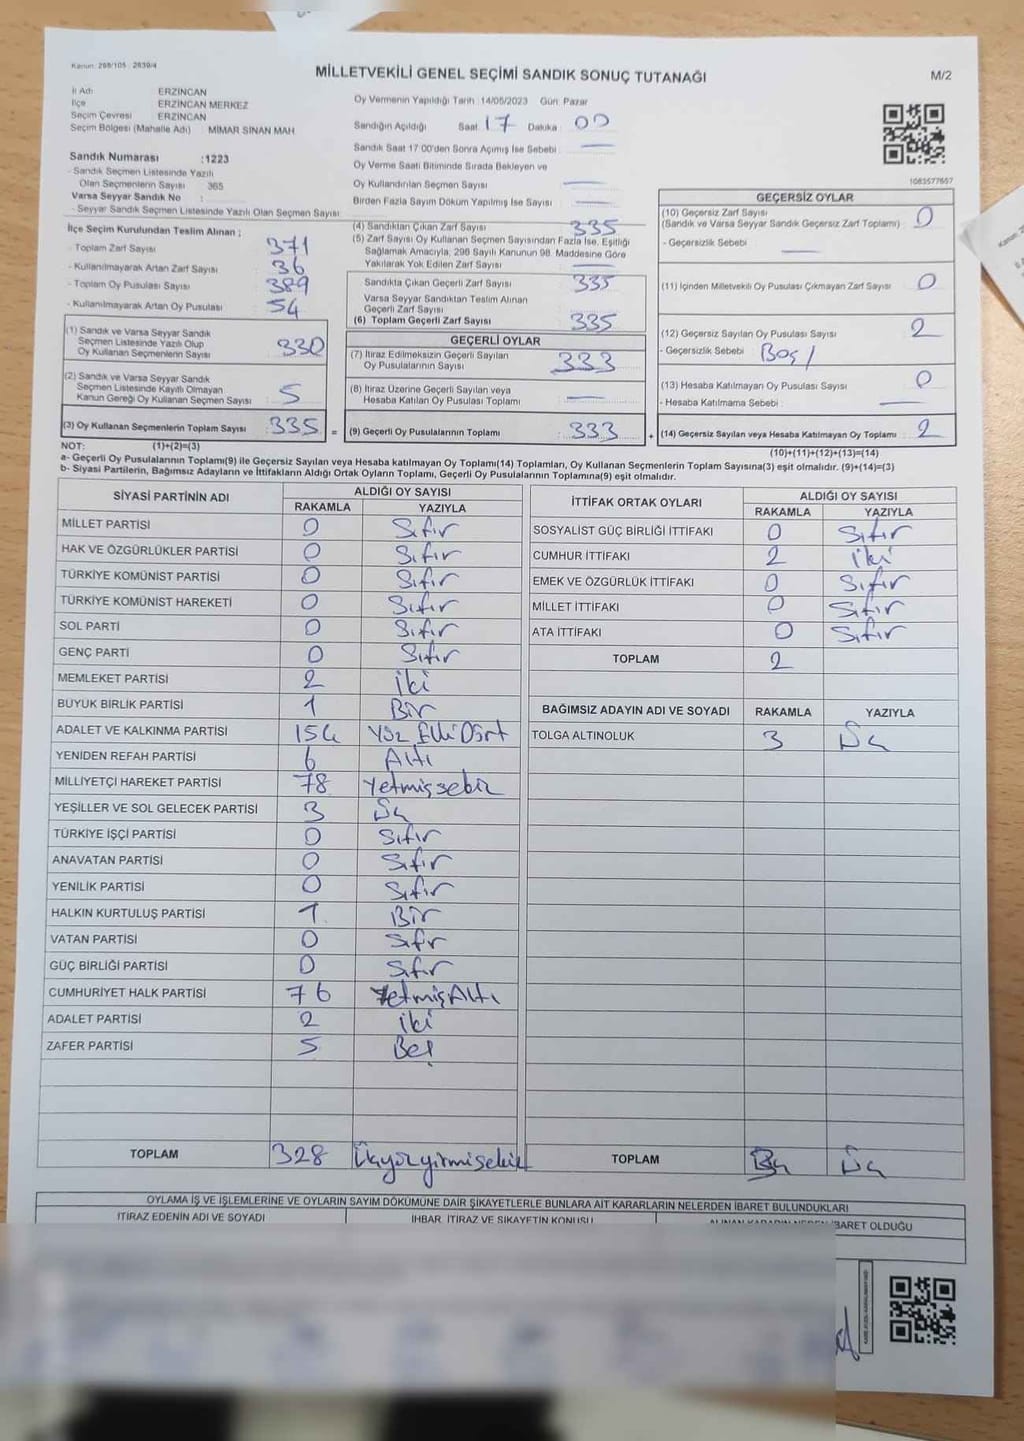 Kanun: 298/105 - 2839/4
MİLLETVEKİLİ GENEL SEÇİMİ SANDIK SONUÇ TUTANAĞI
M/2
İl Adı ERZİNCAN
İlçe ERZİNCAN MERKEZ
Seçim Çevresi ERZİNCAN
Seçim Bölgesi (Mahalle Adı) MİMAR SİNAN MAH
Sandık Numarası :1223
- Sandık Seçmen Listesinde Yazılı
Olan Seçmenlerin Sayısı 365
Varsa Seyyar Sandık No :
- Seyyar Sandık Seçmen Listesinde Yazılı Olan Seçmen Sayısı
Oy Vermenin Yapıldığı Tarih :14/05/2023 Gün: Pazar
Sandığın Açıldığı Saat 17 Dakika : 00
Sandık Saat 17:00'den Sonra Açımış İse Sebebi —
Oy Verme Saati Bitiminde Sırada Bekleyen ve
Oy Kullandırılan Seçmen Sayısı —
Birden Fazla Sayım Döküm Yapılmış İse Sayısı —
1083577657
İlçe Seçim Kurulundan Teslim Alınan ;
- Toplam Zarf Sayısı 371
- Kullanılmayarak Artan Zarf Sayısı 36
- Toplam Oy Pusulası Sayısı 389
- Kullanılmayarak Artan Oy Pusulası 54
(1) Sandık ve Varsa Seyyar Sandık
Seçmen Listesinde Yazılı Olup
Oy Kullanan Seçmenlerin Sayısı 330
(2) Sandık ve Varsa Seyyar Sandık
Seçmen Listesinde Kayıtlı Olmayan
Kanun Gereği Oy Kullanan Seçmen Sayısı 5
(3) Oy Kullanan Seçmenlerin Toplam Sayısı : 335 =
(4) Sandıktan Çıkan Zarf Sayısı 335
(5) Zarf Sayısı Oy Kullanan Seçmen Sayısından Fazla İse, Eşitliği
Sağlamak Amacıyla, 298 Sayılı Kanunun 98. Maddesine Göre
Yakılarak Yok Edilen Zarf Sayısı —
Sandıkta Çıkan Geçerli Zarf Sayısı 335
Varsa Seyyar Sandıktan Teslim Alınan
Geçerli Zarf Sayısı
(6) Toplam Geçerli Zarf Sayısı 335
GEÇERLİ OYLAR
(7) İtiraz Edilmeksizin Geçerli Sayılan
Oy Pusulalarının Sayısı 333
(8) İtiraz Üzerine Geçerli Sayılan veya
Hesaba Katılan Oy Pusulası Toplamı —
(9) Geçerli Oy Pusulalarının Toplamı 333 +
GEÇERSİZ OYLAR
(10) Geçersiz Zarf Sayısı 0
(Sandık ve Varsa Seyyar Sandık Geçersiz Zarf Toplamı)
- Geçersizlik Sebebi —
(11) İçinden Milletvekili Oy Pusulası Çıkmayan Zarf Sayısı 0
(12) Geçersiz Sayılan Oy Pusulası Sayısı 2
- Geçersizlik Sebebi Boş
(13) Hesaba Katılmayan Oy Pusulası Sayısı 0
- Hesaba Katılmama Sebebi : —
(14) Geçersiz Sayılan veya Hesaba Katılmayan Oy Toplamı 2
NOT: (1)+(2)=(3)
(10)+(11)+(12)+(13)=(14)
a- Geçerli Oy Pusulalarının Toplamı(9) ile Geçersiz Sayılan veya Hesaba katılmayan Oy Toplamı(14) Toplamları, Oy Kullanan Seçmenlerin Toplam Sayısına(3) eşit olmalıdır. (9)+(14)=(3)
b- Siyasi Partilerin, Bağımsız Adayların ve İttifakların Aldığı Ortak Oyların Toplamı, Geçerli Oy Pusulalarının Toplamına(9) eşit olmalıdır.
SİYASİ PARTİNİN ADI ALDIĞI OY SAYISI
RAKAMLA YAZIYLA
MİLLET PARTİSİ 0 Sıfır
HAK VE ÖZGÜRLÜKLER PARTİSİ 0 Sıfır
TÜRKİYE KOMÜNİST PARTİSİ 0 Sıfır
TÜRKİYE KOMÜNİST HAREKETİ 0 Sıfır
SOL PARTİ 0 Sıfır
GENÇ PARTİ 0 Sıfır
MEMLEKET PARTİSİ 2 İki
BÜYÜK BİRLİK PARTİSİ 1 Bir
ADALET VE KALKINMA PARTİSİ 154 Yüz Elli Dört
YENİDEN REFAH PARTİSİ 6 Altı
MİLLİYETÇİ HAREKET PARTİSİ 78 Yetmişsekiz
YEŞİLLER VE SOL GELECEK PARTİSİ 3 Üç
TÜRKİYE İŞÇİ PARTİSİ 0 Sıfır
ANAVATAN PARTİSİ 0 Sıfır
YENİLİK PARTİSİ 0 Sıfır
HALKIN KURTULUŞ PARTİSİ 1 Bir
VATAN PARTİSİ 0 Sıfır
GÜÇ BİRLİĞİ PARTİSİ 0 Sıfır
CUMHURİYET HALK PARTİSİ 76 Yetmiş Altı
ADALET PARTİSİ 2 İki
ZAFER PARTİSİ 5 Beş
TOPLAM 328 Üçyüzyirmisekiz
İTTİFAK ORTAK OYLARI ALDIĞI OY SAYISI
RAKAMLA YAZIYLA
SOSYALİST GÜÇ BİRLİĞİ İTTİFAKI 0 Sıfır
CUMHUR İTTİFAKI 2 İki
EMEK VE ÖZGÜRLÜK İTTİFAKI 0 Sıfır
MİLLET İTTİFAKI 0 Sıfır
ATA İTTİFAKI 0 Sıfır
TOPLAM 2
BAĞIMSIZ ADAYIN ADI VE SOYADI RAKAMLA YAZIYLA
TOLGA ALTINOLUK 3 Üç
TOPLAM Üç
OYLAMA İŞ VE İŞLEMLERİNE VE OYLARIN SAYIM DÖKÜMÜNE DAİR ŞİKAYETLERLE BUNLARA AİT KARARLARIN NELERDEN İBARET BULUNDUKLARI
İTİRAZ EDENİN ADI VE SOYADI İHBAR, İTİRAZ VE ŞİKAYETİN KONUSU ALINAN KARARIN NEDEN İBARET OLDUĞU